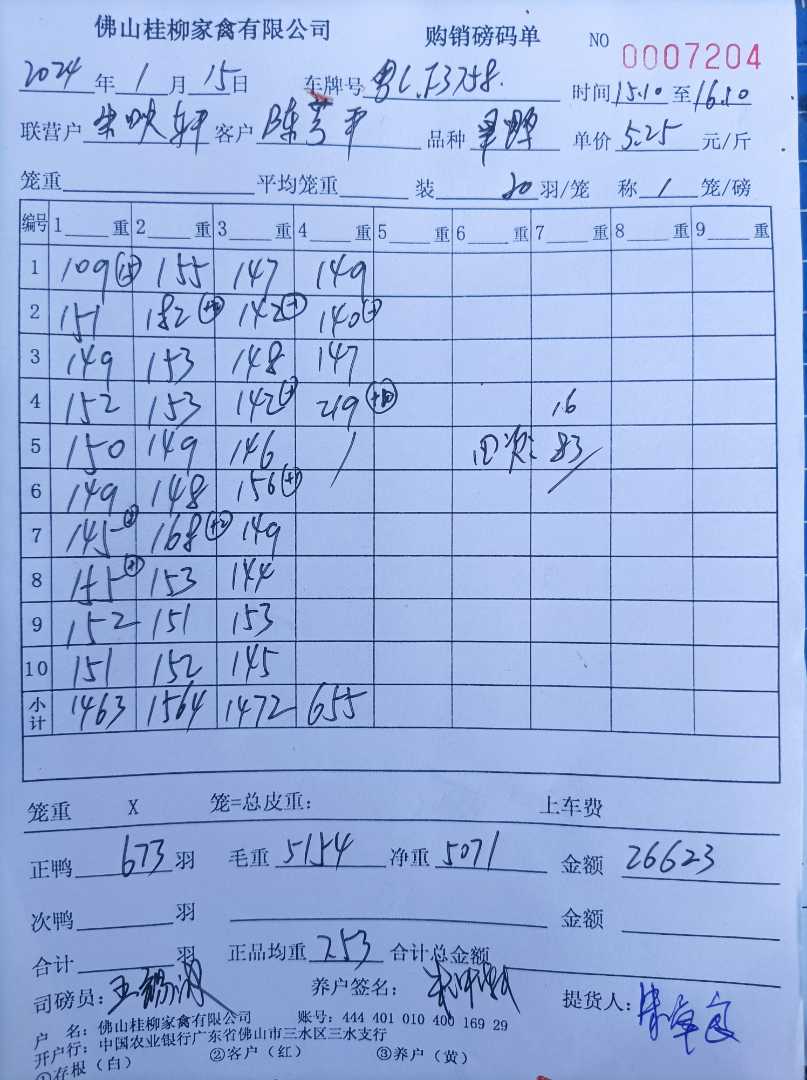 佛山桂柳家禽有限公司 购销磅码单 NO 0007204
2024年1月15日 车牌号 粤C.F3758. 时间15.10至16.10
联营户 客户 陈 平 品种 单价5.25元/斤
笼重 平均笼重 装 20羽/笼 称1笼/磅
编号 1 重 2 重 3 重 4 重 5 重 6 重 7 重 8 重 9 重
1 109(15) 155 147 149
2 151 182 142(-1) 140
3 149 153 148 147
4 152 153 142 219(+10) 16
5 150 149 146 / 回次: 83
6 149 148 156(+1)
7 145 168(+2) 149
8 155 153 144
9 152 151 153
10 151 152 145
小计 1463 1564 1472 655
笼重 X 笼=总皮重: 上车费
正鸭 673 羽 毛重 5154 净重 5071 金额 26623
次鸭 羽 金额
合计 羽 正品均重 7.53 合计总金额
司磅员: 王 养户签名: 提货人:
户 名: 佛山桂柳家禽有限公司 账号: 444 401 010 400 169 29
开户行: 中国农业银行广东省佛山市三水区三水支行
①存根(白) ②客户(红) ③养户(黄)